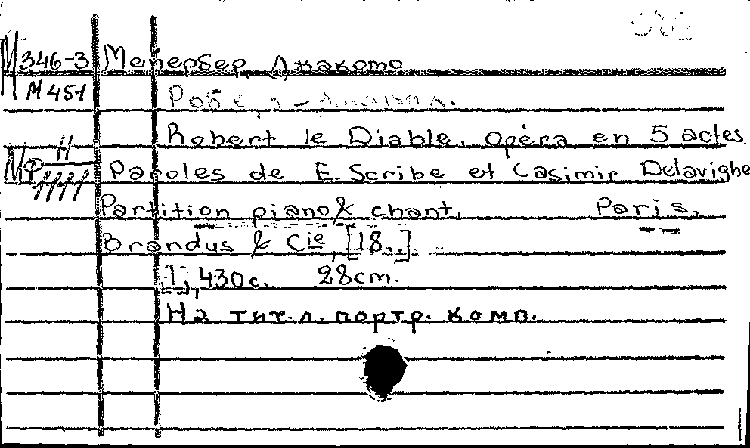 М 346-3 Мейербер, Джакомо
М 451
Роберт-Дьявол.
Robert le Diable. Opéra en 5 actes
Н
Paroles de E. Scribe et Casimir Delavigne
Partition piano & chant. Paris,
Brandus & Cie, [18..].
[1], 430с. 28cm.
На тит. л. портр. комп.